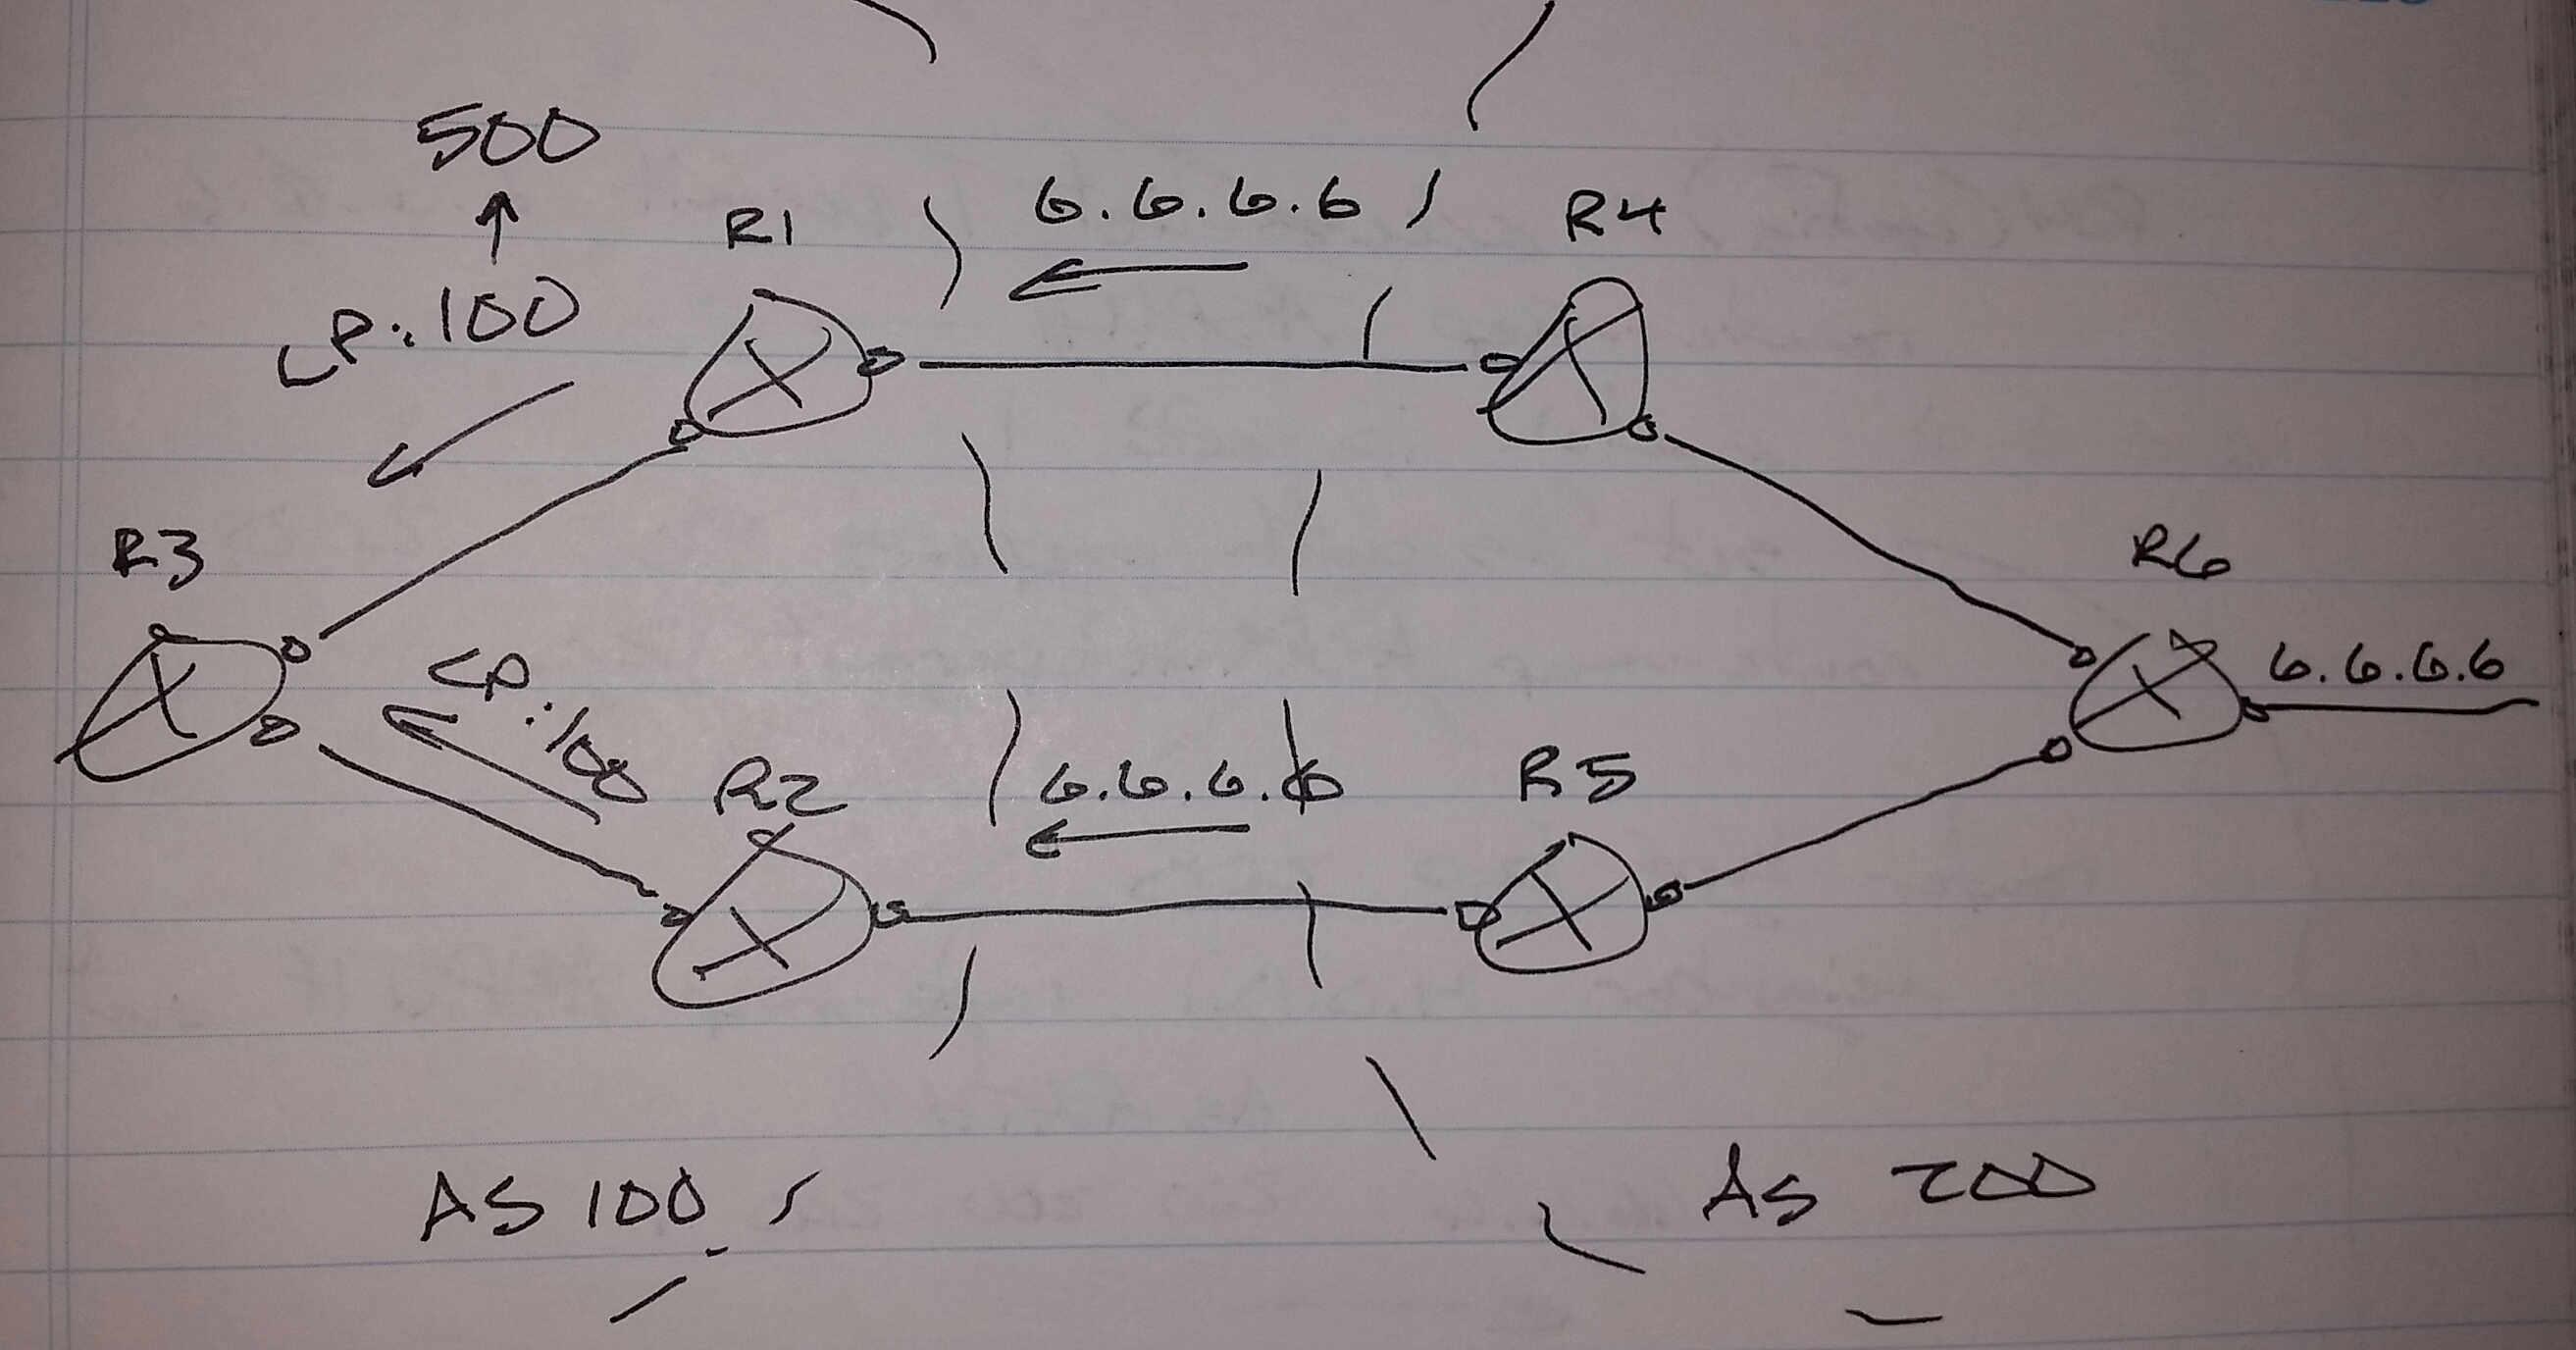 500
LP:100
R1
6.6.6.6
R4
R3
R6
6.6.6.6
LP:100
R2
6.6.6.6
R5
AS 100
AS 200